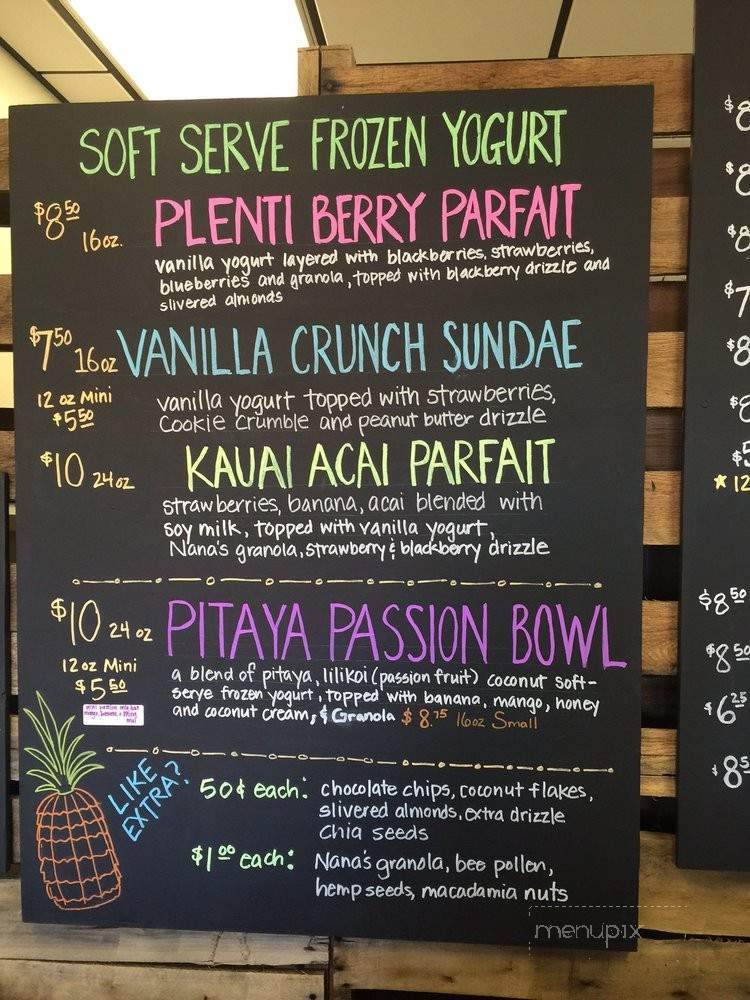 SOFT SERVE FROZEN YOGURT
$8.50 16oz. PLENTI BERRY PARFAIT
vanilla yogurt layered with blackberries, strawberries,
blueberries and granola, topped with blackberry drizzle and
slivered almonds
$7.50 16oz VANILLA CRUNCH SUNDAE
12 oz Mini
$5.50
vanilla yogurt topped with strawberries,
Cookie Crumble and peanut butter drizzle
$10 24oz KAUAI ACAI PARFAIT
strawberries, banana, acai blended with
soy milk, topped with vanilla yogurt,
Nana's granola, strawberry & blackberry drizzle
$10 24 oz PITAYA PASSION BOWL
12 oz Mini
$5.50
a blend of pitaya, lilikoi (passion fruit) coconut soft-
serve frozen yogurt, topped with banana, mango, honey
and coconut cream, & Granola $8.75 16oz Small
LIKE
EXTRA?
50¢ each: chocolate chips, coconut flakes,
slivered almonds, extra drizzle
Chia seeds
$1.00 each: Nana's granola, bee pollen,
hemp seeds, macadamia nuts
$8.50
$8.50
$6.25
menupix